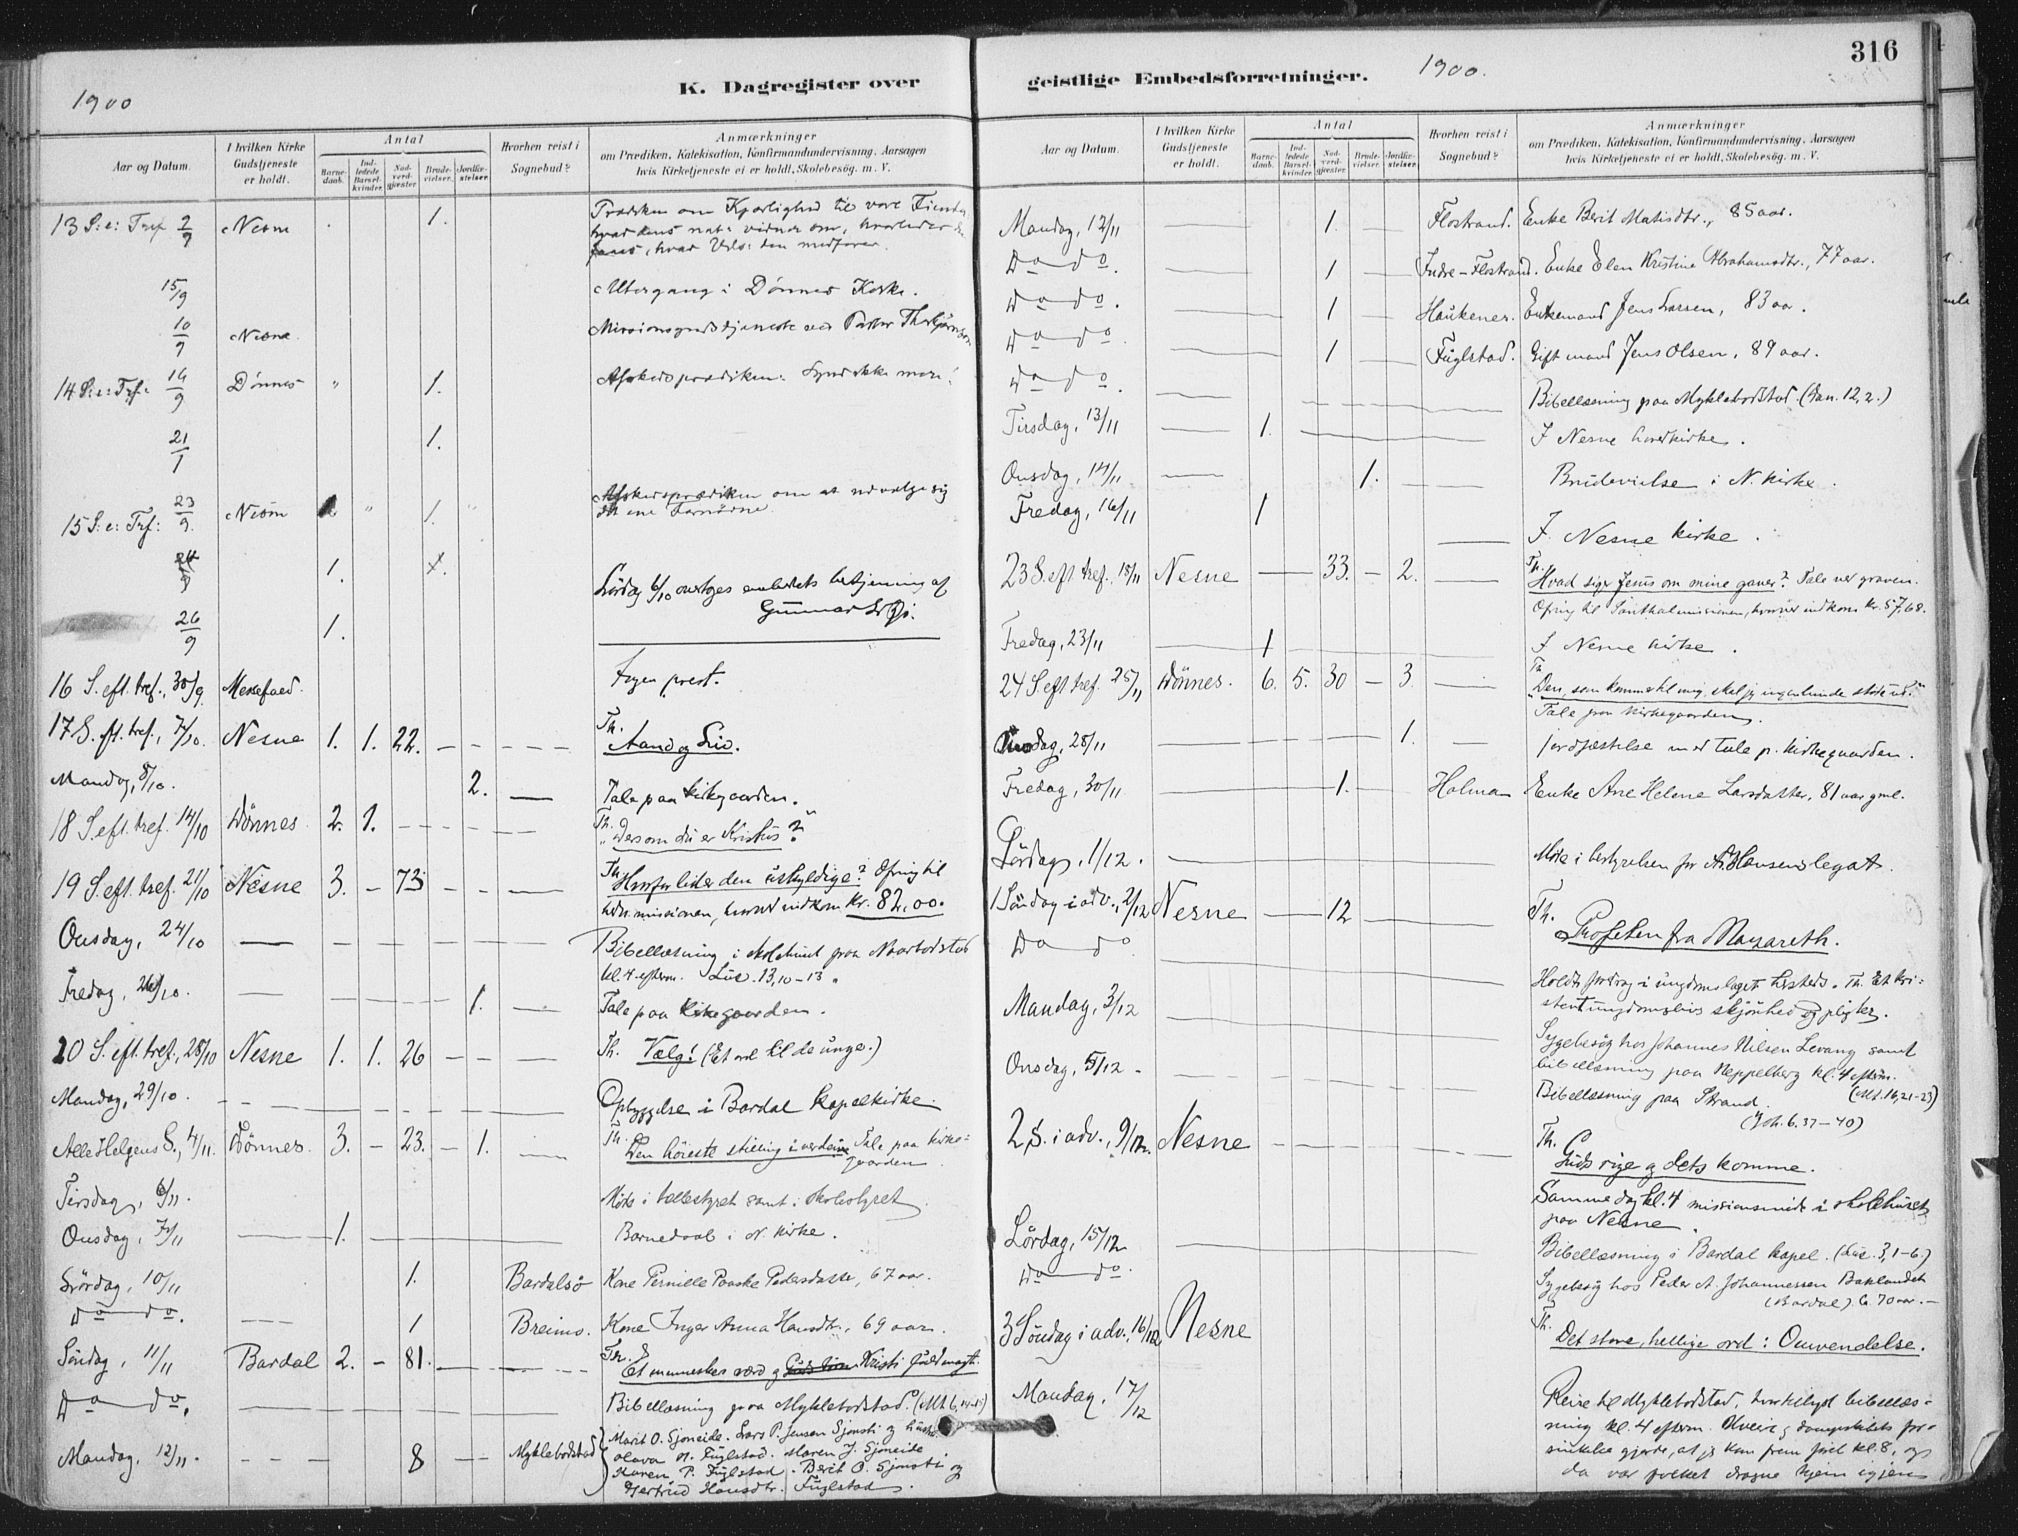 316
1900
1900.
K. Dagregister over
geistlige Embedsforretninger.
Aar og Datum.
I hvilken Kirke Gudstjeneste er holdt.
Antal
Barne-daab.
Ind-ledede Barsel-kvinder.
Nad-verd-gjæster
Brude-vielser.
Jordfæ-stelser.
Hvorhen reist i Sognebud?
Anmærkninger
om Prædiken, Katekisation, Konfirmandundervisning, Aarsagen
hvis Kirketjeneste ei er holdt, Skolebesøg. m. V.
13 S: e: Tref 2/9 Nesne 1. Prædiken om Kjærlighed til vore Fiender
15/9 i Dønnes Kirke.
10/9 Nesne. Missionsgudstjeneste ved Pastor
14 S: e: Trf: 16/9 Dønnes " 1. Afskedsprædiken. Synd ikke mere!
21/ 1.
15 S: e: Trf: 23/9 Nesne " 1. Afskedsprædiken om at udvælge sig
det ene Fornødne.
24/9 1.
Lørdag 6/10 overtoges embedets betjening af
26/9 1. Gunnar
16 S. eft. tref., 30/9. Messefald. Ingen prest.
17 S. eft. tref., 7/10. Nesne 1. 1. 22. Th. Aand og Liv.
Mandag, 8/10. 2. Tale paa kirkegaarden.
18 S. eft. tref. 14/10 Dønnes 2. 1. Th. "Dersom du er Kristus?"
19 S. eft. tref. 21/10 Nesne 3. – 73 Th. Hvorfor lider den uskyldige? Ofring til
missionen, hvorved indkom kr. 82,00.
Onsdag, 24/10 Bibellæsning i skolehuset paa
kl. 4 efterm. Luc. 13,10–13.
Fredag, 26/10. 1. Tale paa kirkegaarden.
20 S. eft. tref., 28/10 Nesne 1. 1. 26 Th. Vælg! (Et ord til de unge.)
Mandag, 29/10. Opbyggelse i Bardal kapelkirke.
Alle Helgens S., 4/11. Dønnes. 3. – 23. – 1. Th. Den høieste stilling i verden. Tale paa kirke-
gaarden.
Tirsdag, 6/11. Møde i samt i skolestyret.
Onsdag, 7/11 1. Barnedaab i N. kirke.
Lørdag, 10/11 1. Bardalsø Kone Pernille Paaske Pedersdatter, 67 aar.
Do do. 1 Breimo. Kone Inger Anna Hansdtr., 69 aar.
Søndag, 11/11 Bardal 2. – 81. Th. Et menneskes værd og Kristi fuldmagt.
Do do. Bibellæsning paa Myklebostad.
Mandag, 12/11. 8 Myklebostad Marit O. Sjoneide. Lars P. Jensen Sjonsti og
Fuglstad. Maren J. Sjoneide
Maren P. Fuglstad. Berit O. Sjonsti og
Gertrud Hansdtr. Fuglstad.
Aar og Datum.
I hvilken Kirke Gudstjeneste er holdt.
Antal
Barne-daab.
Ind-ledede Barsel-kvinder.
Nad-verd-gjæster
Brude-vielser.
Jordfæ-stelser.
Hvorhen reist i Sognebud?
Anmærkninger
om Prædiken, Katekisation, Konfirmandundervisning, Aarsagen
hvis Kirketjeneste ei er holdt, Skolebesøg. m. V.
Mandag, 12/11 1. Flostrand. Enke Berit Matisdtr., 85 aar.
Do do. 1 Indre-Flostrand. Enke Elen Kristine Abrahamsdtr., 77 aar.
Do do. 1 Haukenes. Enkemand Jens Larsen, 83 aar.
Do do. 1 Fuglstad. Gift mand Jens Olsen, 89 aar.
Do do. Bibellæsning paa Myklebostad. (Dan. 12, 2.)
Tirsdag, 13/11 1. I Nesne hovedkirke.
Onsdag, 14/11 1. Brudevielse i N. kirke.
Fredag, 16/11 1 I Nesne kirke.
23 S. eft. tref., 18/11 Nesne 33. – 2. Th. Hvad siger Jesus om mine gaver? Tale ved graven.
Ofring til Santhalmissionen, hvorved indkom kr. 57,68.
Fredag, 23/11 1 I Nesne kirke.
24 S. eft. tref. 25/11 Dønnes. 6. 5. 30 – 3. Th. "Den, som kommer til mig, skal jeg ingenlunde støde ud."
Tale paa kirkegaarden.
Onsdag, 28/11 1. Jordfæstelse med tale p. kirkegaarden.
Fredag, 30/11 1. Holman Enke Ane Helene Larsdatter, 81 aar gml.
Lørdag, 1/12. Møde i bestyrelsen for A. Hansens legat.
1 Søndag i adv., 2/12 Nesne 12 Th. Profeten fra Nazareth.
Do do Holdt foredrag i ungdomslaget hersteds. Th. Et kri-
stent ungdomslivs skjønhed og pligter.
Mandag, 3/12 Sygebesøg hos Johannes Nilsen Levang samt
bibellæsning paa kl. 4 efterm.
(Mt. 16,21–23)
Onsdag, 5/12 Bibellæsning paa Strand.
(Joh. 6.37–40)
2 S. i adv., 9/12. Nesne Th. Guds rige og dets komme.
Samme dag kl. 4 missionsmøde i skolehuset
paa Nesne.
Lørdag, 15/12 Bibellæsning i Bardal kapel. (Luc. 3,1–6.)
Do do. Sygebesøg hos Peder A. Johannessen Baklandet
(Bardal). 70 aar.
3 Søndag i adv., 16/12 Nesne Th. Det store, hellige ord: Omvendelse.
Mandag, 17/12 Reise til Myklebostad, bibellæs-
ning kl. 4 efterm. Uveir og dampskibets for-
sinkelse gjorde, at jeg kom frem først kl. 8, og
da var folket dragne hjem igjen.